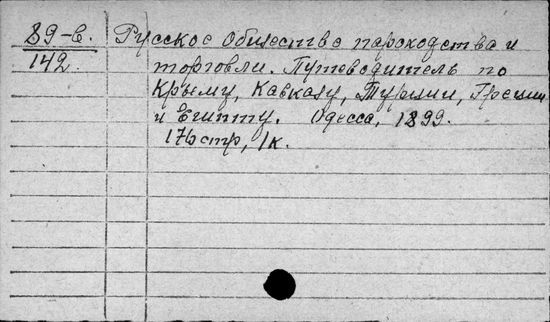 89-в. Русское Общество пароходства и
142 торговли. Путеводитель по
Крыму, Кавказу, Турции, Греции
и Египту. Одесса, 1899.
176 стр, 1к.